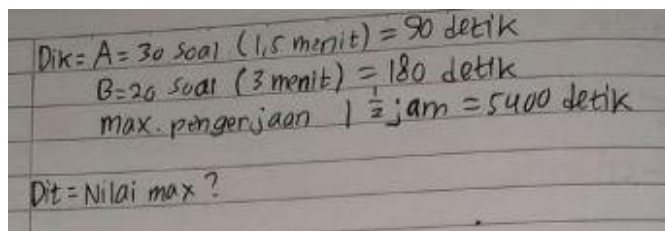 Dik = A = 30 soal (1,5 menit) = 90 detik
B = 20 soal (3 menit) = 180 detik
max. pengerjaan 1 1/2 jam = 5400 detik
Dit = Nilai max ?